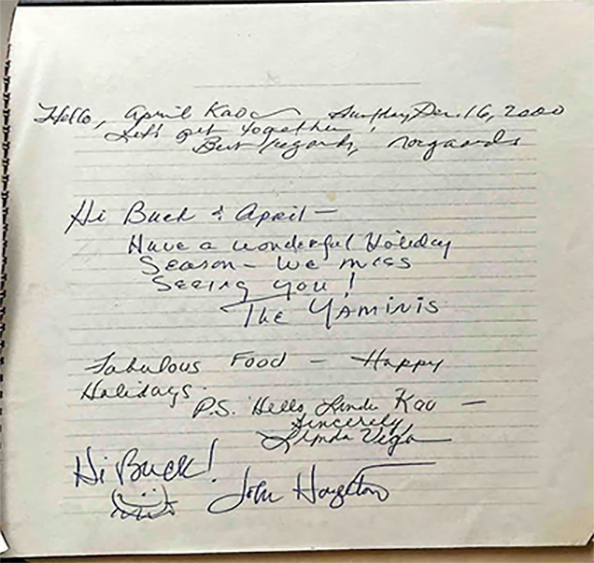 Hello, April Kao Sunday, Dec. 16, 2000
Let's get together!
Best regards,
Hi Buck & April —
Have a wonderful Holiday
Season — We miss
seeing you!
The YAMINIS
Fabulous Food — Happy
Holidays.
P.S. Hello, Linda Kao —
Sincerely
Linda Vega
Hi Buck!
John